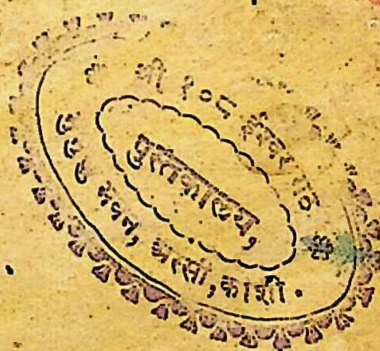 श्री १०८
पुस्तकालय,
भवन, अस्सी, काशी.